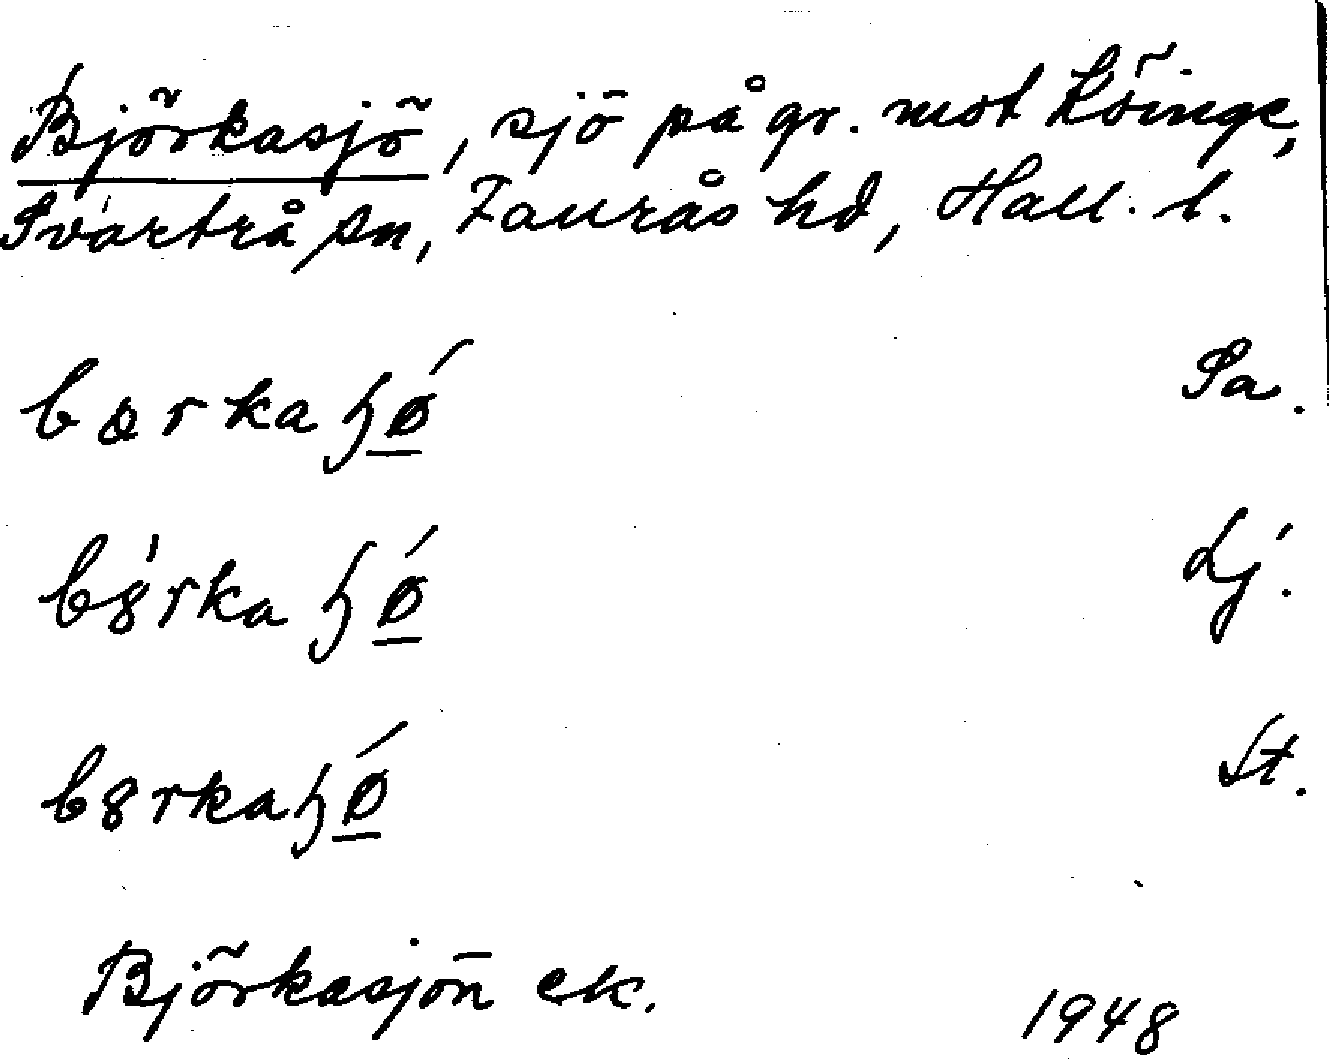 Björkasjö, sjö på gr. mot Köinge,
Svartrå sn, Faurås hd, Hall. l.
Sa.
Lj.
St.
Björkasjön ek. 1948